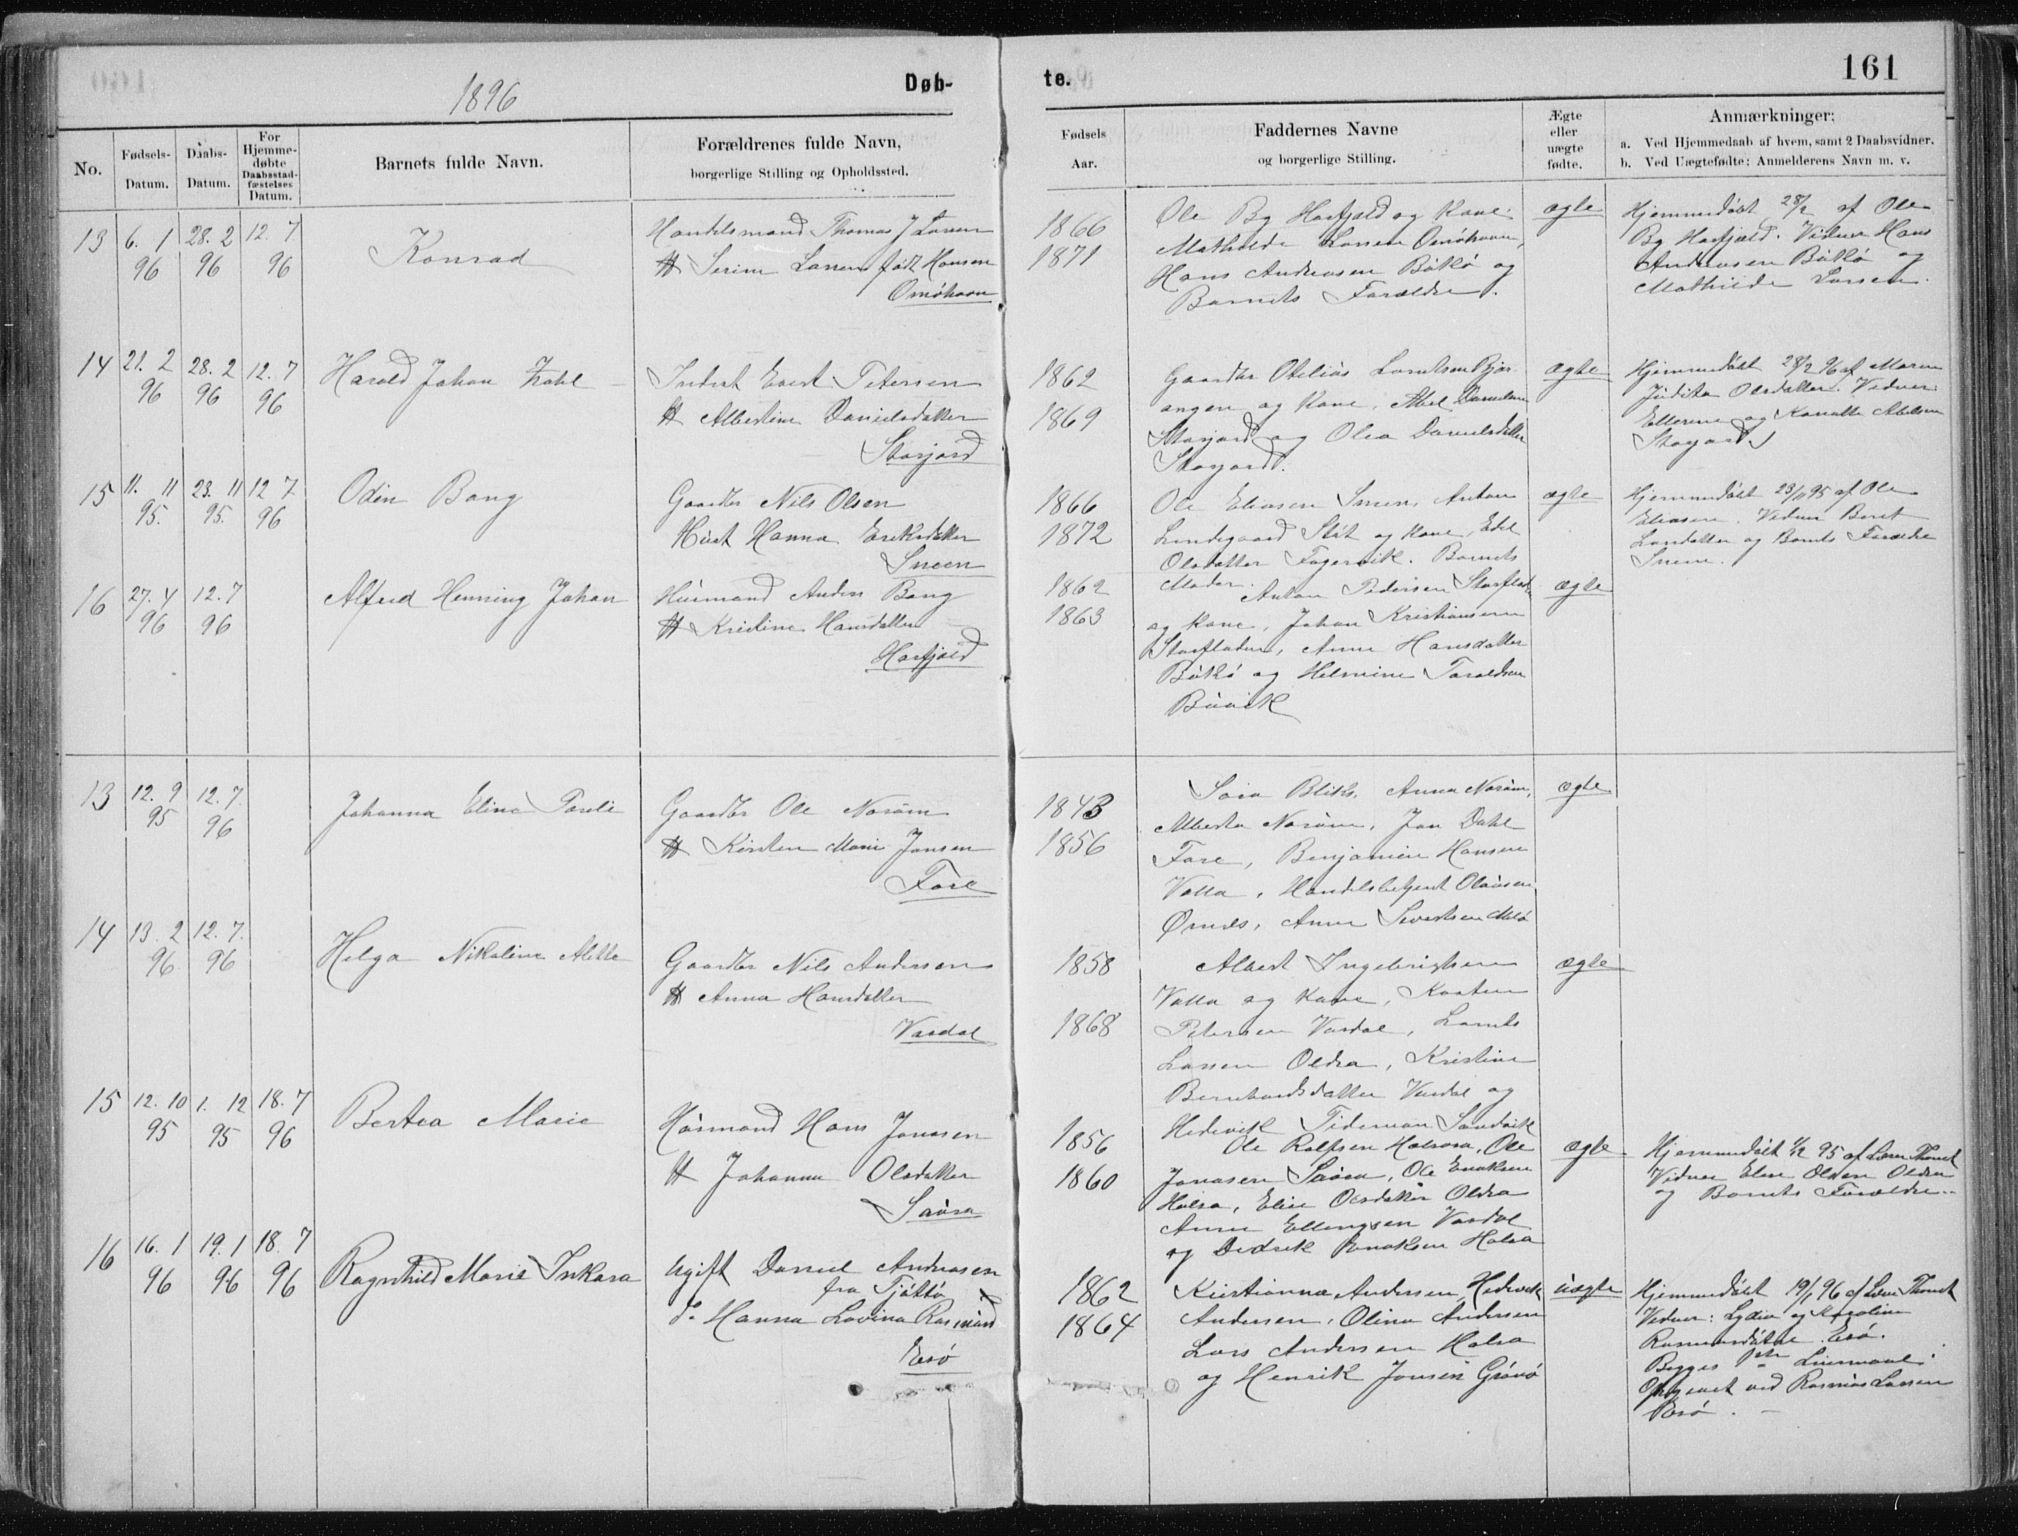 1896
Døb-
te.
161
No.
Fødsels-
Datum.
Daabs-
Datum.
For
Hjemme-
døbte
Daabsstad-
fæstelses
Datum.
Barnets fulde Navn.
Forældrenes fulde Navn,
borgerlige Stilling og Opholdssted.
Fødsels
Aar.
Faddernes Navne
og borgerlige Stilling.
Ægte
eller
uægte
fødte.
Anmærkninger:
a. Ved Hjemmedaab af hvem, samt 2 Daabsvidner.
b. Ved Uægtefødte: Anmelderens Navn m. v.
13 6. 1 28. 2 12. 7
96 96 96
Konrad
Handelsmand Thomas J Larsen
H Serine Larsen født Hansen
Omøhavn
1866
1871
Ole By Harfjeld og Kone
Mathilde Larsen Omøhavn,
Hans Andreasen Bøkø og
Barnets Forældre.
ægte
Hjemmedøbt 28/2 af Ole
By Harfjeld. Vidner Hans
Andreasen Bøkø og
Mathilde Larsen.
14 21. 2 28. 2 12. 7
96 96 96
Harald Johan
Inderst Evert Petersen
H Albertine Danielsdatter
Storjord
1862
1869
Gaardbr Otelius
angen og Kone, Abel Danielsen
Storjord og Olea Danielsdatter
Storjord.
ægte
Hjemmedøbt 28/2 96 af Maren
Judita Olsdatter. Vidner:
Ellerine og Abelsen
Storjord
15 11. 11 23. 11 12 7
95. 95. 96
Odin Bang
Gaardbr Nils Olsen
Hust Hanna Eriksdatter
Sneen
1866
1872
Ole Eliasen Sneen, Anton
Lindegaard Støt og Kone, Edel
Olsdatter Fagervik. Barnets
Moder.
ægte
Hjemmedøbt 23/11 95 af Ole
Eliasen. Vidner Beret
Larsdatter og Barnets Forældre
Sneen.
16 27. 4 12. 7
96 96
Alfred Henning Johan
Husmand Anders Bang
H Kristine Hansdatter
Harfjeld
1862
1863
Anton Pedersen Storflad
og Kone, Johan Kristiansen
Storfladen, Anne Hansdatter
Bøkø og Helmine Taraldsen
Buvik
ægte
13 12. 9 12. 7.
95 96
Johanna Elina Pauli
Gaardbr Ole Norum
H Kirsten Marie Jansen
Fore
1843
1856
Blix, Anna Norum,
Alberta Norum, Jan Dahl
Fore, Benjamin Hansen
Valla, Handelsbetjent Olausen
Ørnes, Anne Sivertsen Melø
ægte
14 13. 2 12. 7.
96 96
Helga Nikoline Alette
Gaardbr Nils Andersen
H Anna Hansdatter
Vasdal
1858
1868
Albert Ingebrigtsen
Valla og Kone, Karsten
Petersen Vasdal, Lorents
Larsen Oldra, Kristine
Bernhardsdatter Vasdal og
Hedevik Tideman Sandvik
ægte
15 12. 10 1. 12 18. 7
95 95 96
Bertea Marie
Husmand Hans Jonasen
H Johanna Olsdatter
Saura
1856
1860
Ole Rolfsen Halsaa, Ole
Jonasen Saura, Ole Enoksen
Halsa, Elise Olsdatter Oldra
Anna Ellingsen Vasdal
og Didrik Enoksen Halsa
ægte
Hjemmedøbt 1/12 95 af Lærer Thorset
Vidner Elen Olsen Oldra
og Barnets Forældre..
16 16. 1 19. 1 18. 7
96 96 96
Ragnhild Marie Inkara
Ugift Daniel Andreasen
fra Tjøttø
P. Hanna Lovina Rasmusd
Esø
1862
1864
Kristianna Andersen, Hedevik
Andersen, Olina Andersen
Lars Andersen Halsa
og Henrik Jonsen Grønø
uægte
Hjemmedøbt 19/1 96 af Lærer Thorset
Vidner: Lydia og Karoline
Rasmusdøtre Esø.
Begges 1ste Leiermaal.
Opgivet ved Rasmus Larsen
Esø. -